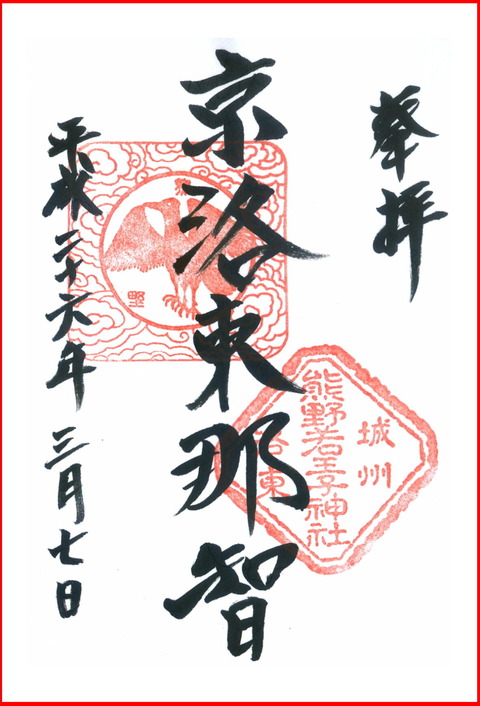 奉拝
京洛東那智
平成二十六年三月七日
城州
熊野若王子神社
洛東
熊
野